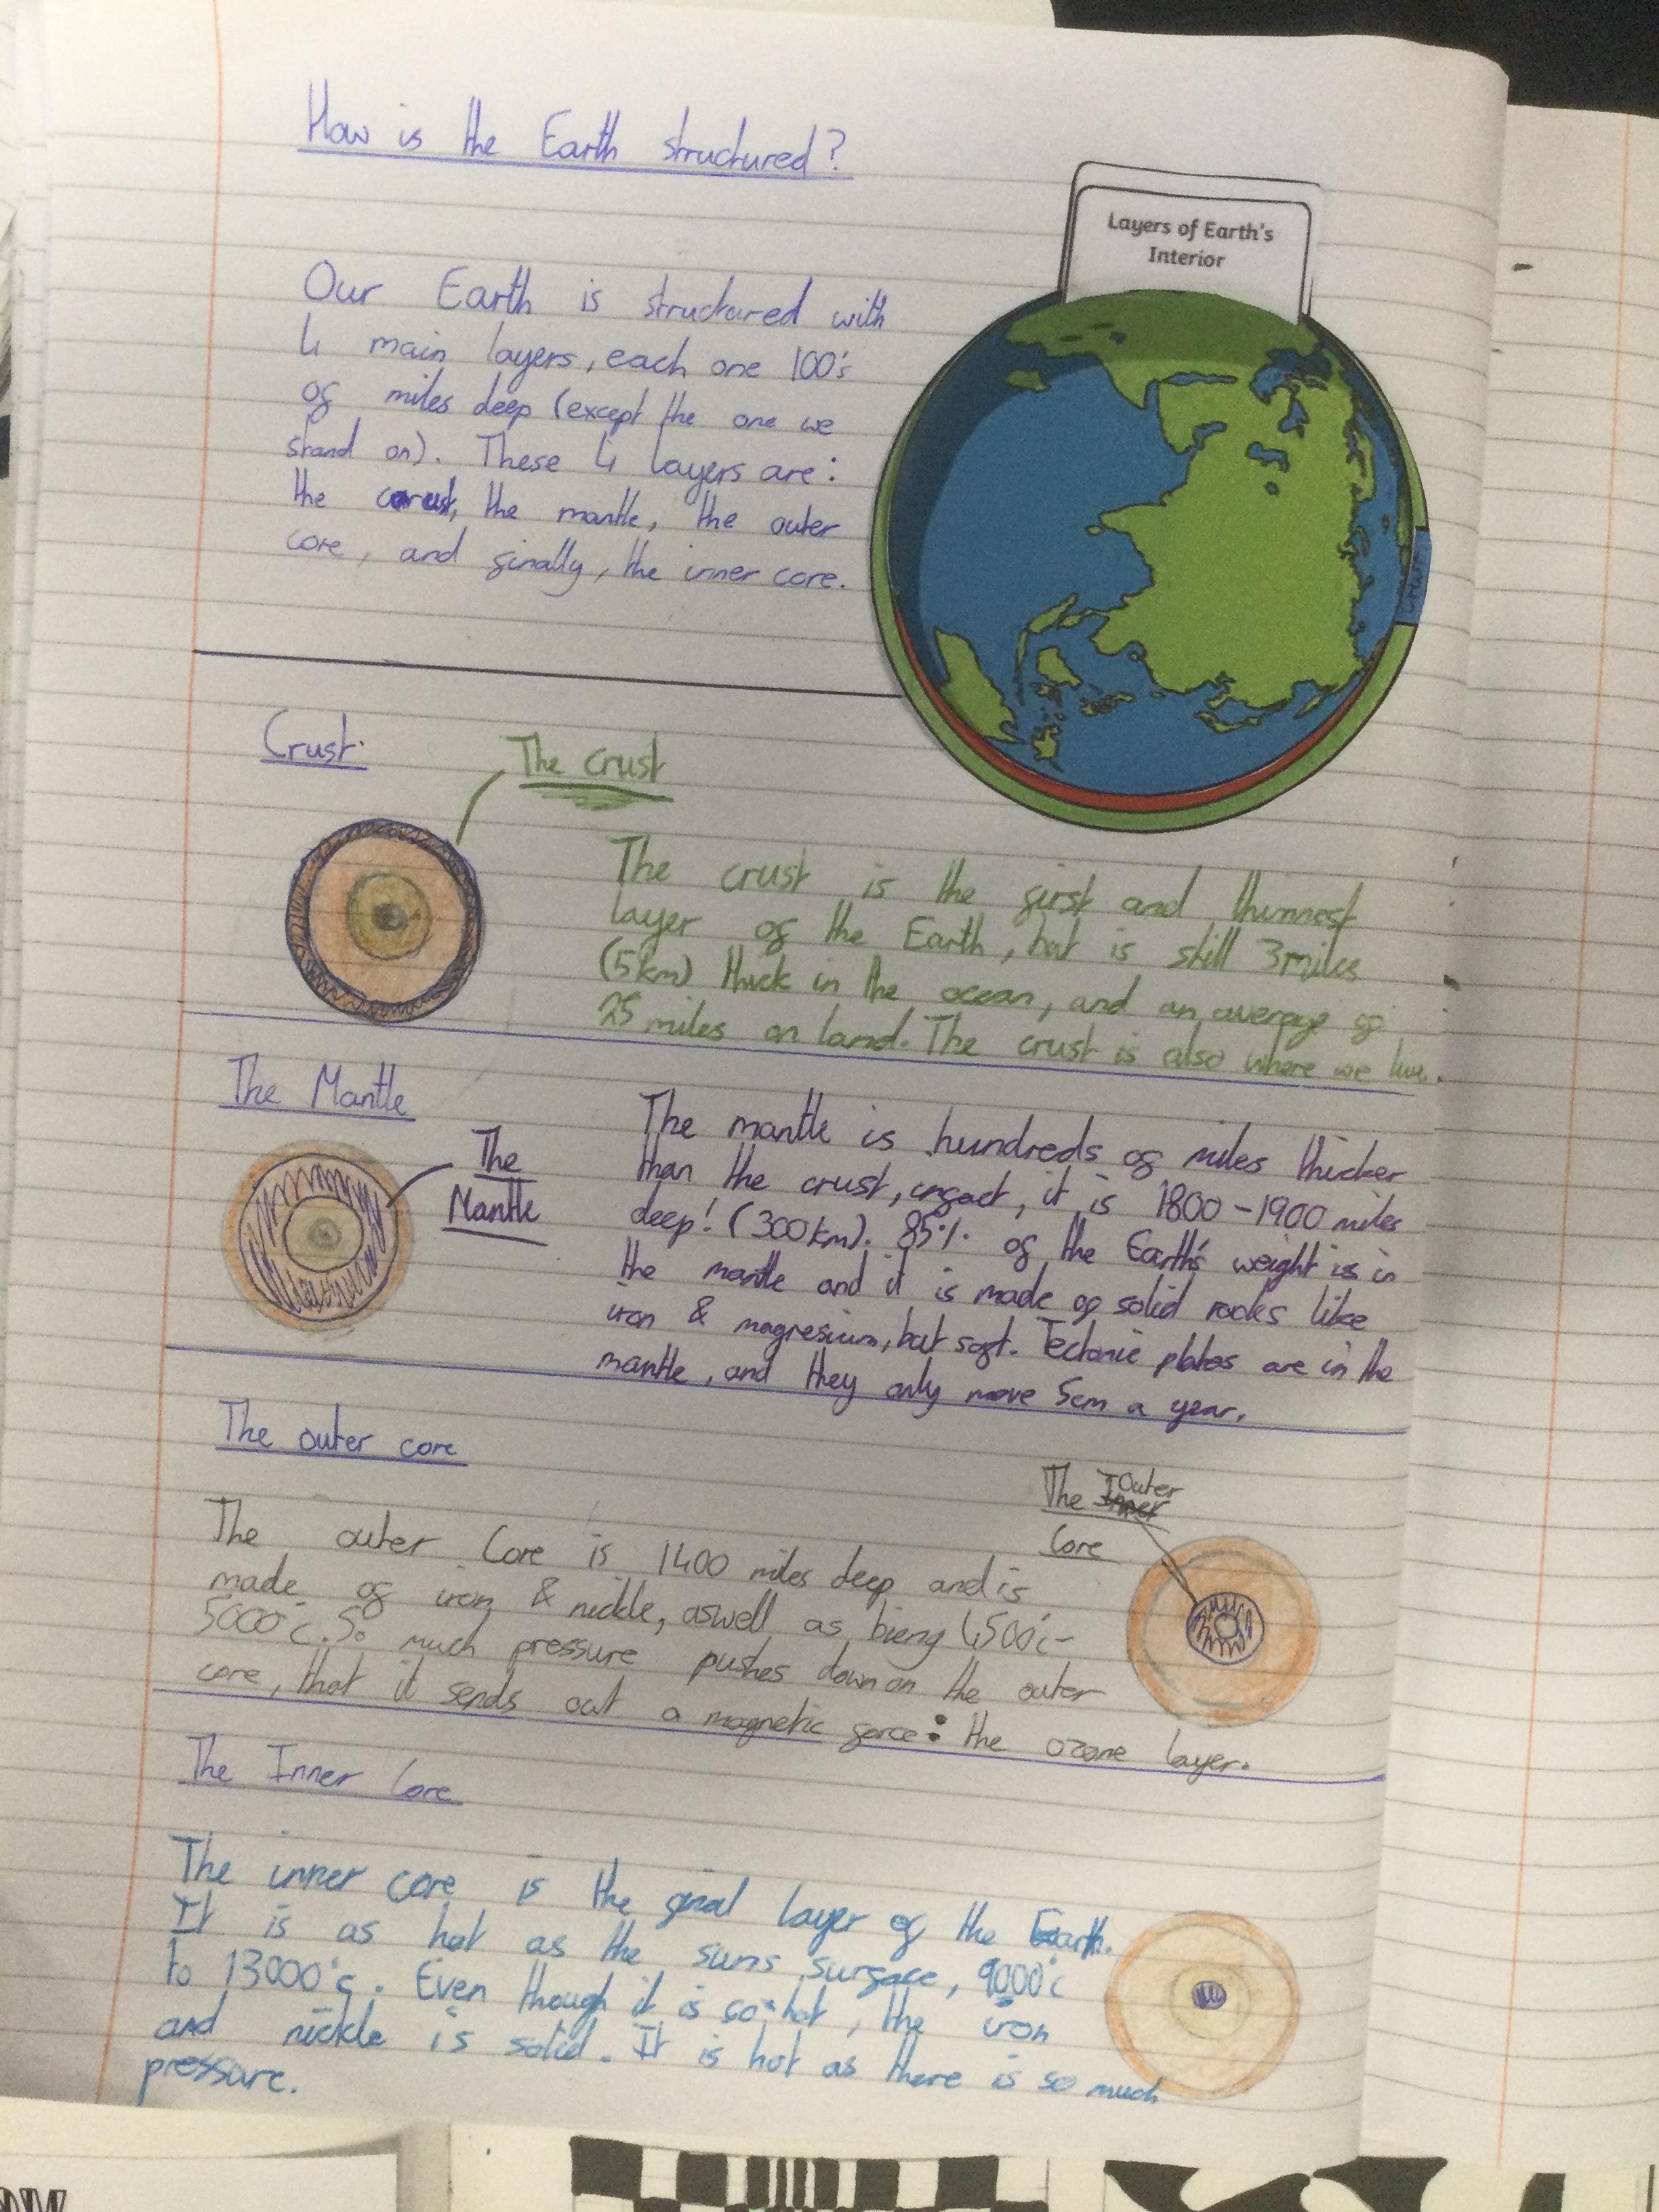 How is the Earth structured?
Layers of Earth's
Interior
Our Earth is structured with
4 main layers, each one 100's
of miles deep (except the one we
stand on). These 4 layers are:
the crust, the mantle, the outer
core, and finally, the inner core.
Crust
Crust
The Crust
The crust is the first and thinnest
layer of the Earth, but is still 3miles
(5km) thick in the ocean, and an average of
25 miles on land. The crust is also where we live.
The Mantle
The
Mantle
The mantle is hundreds of miles thicker
than the crust, infact, it is 1800-1900 miles
deep! (300km). 85% of the Earth's weight is in
the mantle and it is made of solid rocks like
iron & magnesium, but soft. Tectonic plates are in the
mantle, and they only move 5cm a year.
The outer core
The Outer
Core
The outer Core is 1400 miles deep and is
made of iron & nickle, aswell as bieng 4500°c-
5000°c. So much pressure pushes down on the outer
core, that it sends out a magnetic force: the ozone layer.
The Inner Core
The inner core is the final layer of the Earth.
It is as hot as the suns surface, 9000°c
to 13000°c. Even though it is so hot, the iron
and nickle is solid. It is hot as there is so much
pressure.